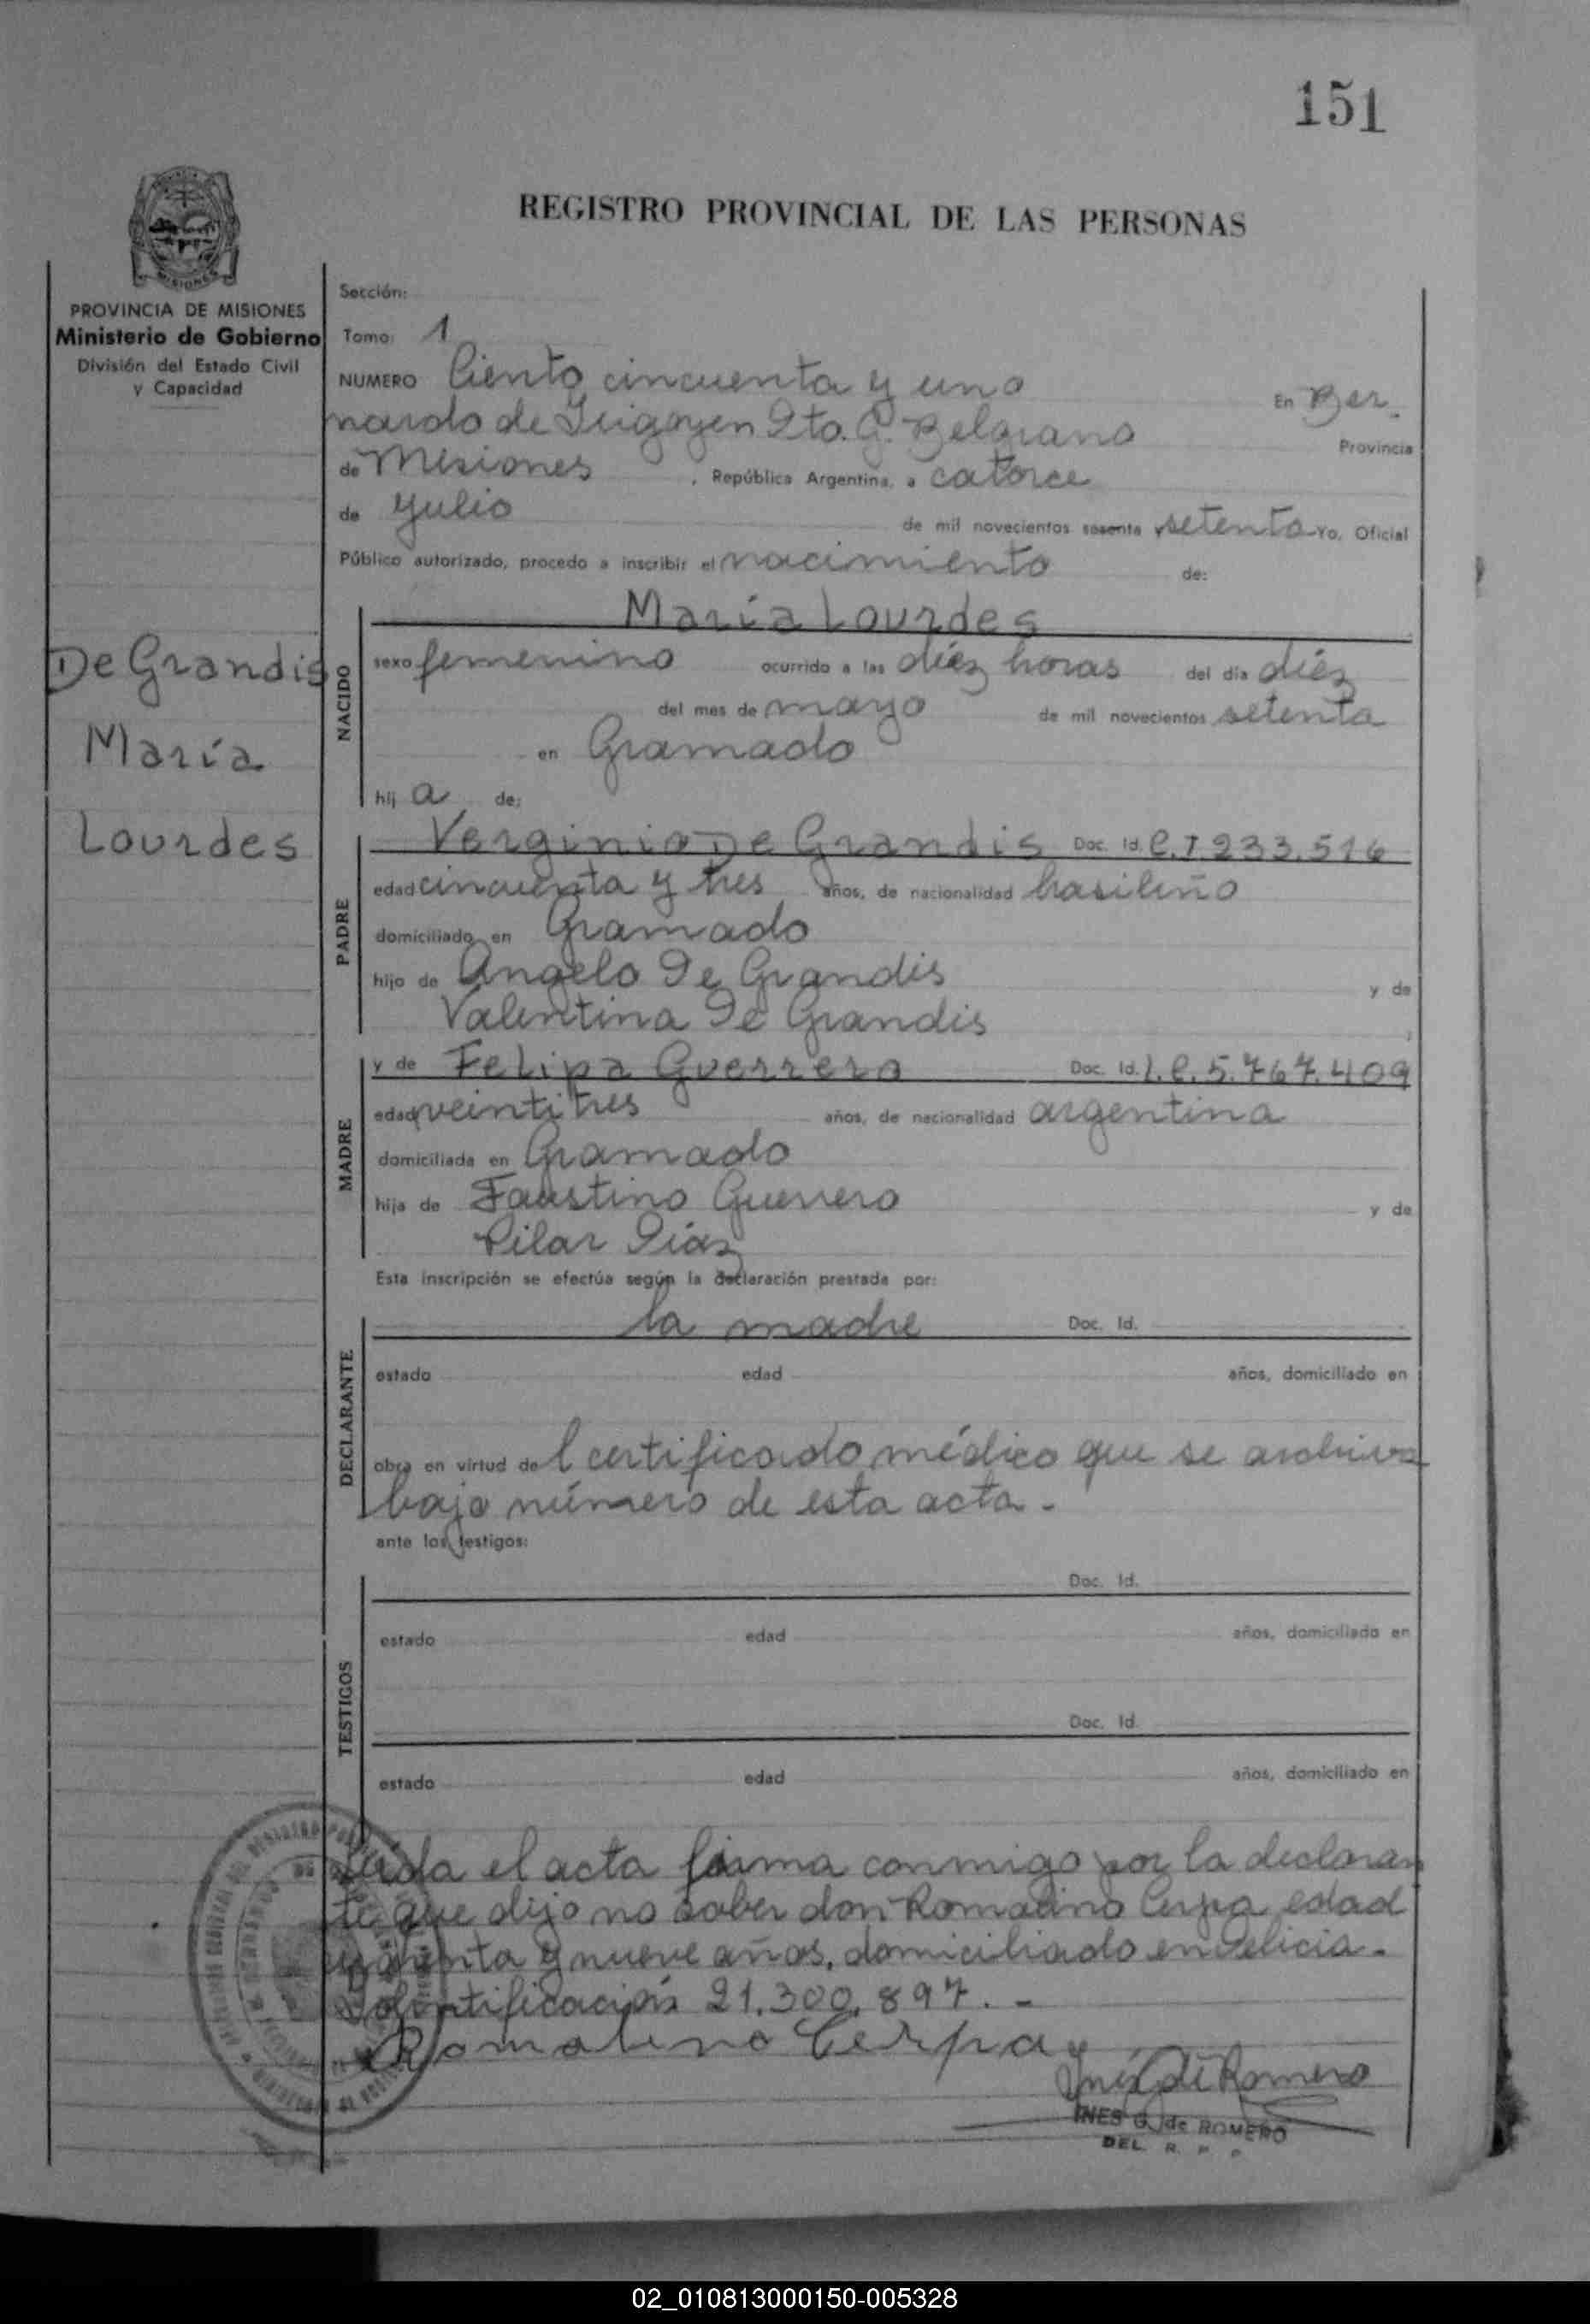 151
REGISTRO PROVINCIAL DE LAS PERSONAS
MISIONES
PROVINCIA DE MISIONES
Ministerio de Gobierno
División del Estado Civil
y Capacidad
De Grandis
María
Lourdes
Sección:
Tomo: 1
NUMERO Ciento cincuenta y uno En Ber
nardo de Irigoyen Dto. G. Belgrano Provincia
de Misiones , República Argentina, a catorce
de julio de mil novecientos sesenta y setenta Yo, Oficial
Público autorizado, procedo a inscribir el nacimiento de:
María Lourdes
NACIDO
sexo femenino ocurrido a las diéz horas del día diéz
del mes de mayo de mil novecientos setenta
en Gramado
hij a de:
PADRE
Verginio De Grandis Doc. Id. C.I 233.516
edad cincuenta y tres años, de nacionalidad brasileño
domiciliado en Gramado
hijo de Angelo De Grandis y de
Valentina De Grandis ;
MADRE
y de Felipa Guerrero Doc. Id. L.C. 5.767.409
edad veintitres años, de nacionalidad argentina
domiciliada en Gramado
hija de Faustino Guerrero y de
Pilar Diáz
Esta inscripción se efectúa según la declaración prestada por:
DECLARANTE
la madre Doc. Id.
estado edad años, domiciliado en
obra en virtud del certificado médico que se archiva
bajo número de esta acta.-
ante los testigos:
TESTIGOS
Doc. Id.
estado edad años, domiciliado en
Doc. Id.
estado edad años, domiciliado en
Leida el acta firma conmigo por la declaran
te que dijo no saber don Romalino Cerpa edad
y nueve años, domiciliado en Delicia.-
Identificación 21.300.897.-
Romalino Cerpa
Inés G. de Romero
INES G. de ROMERO
DEL. R. P. P
02_010813000150-005328